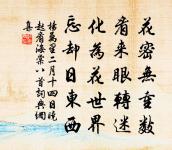 花密無重數
看來眼轉迷
化為花世界
忘却日東西
楊萬里二月十四日曉
起看海棠八首詞典網
喜